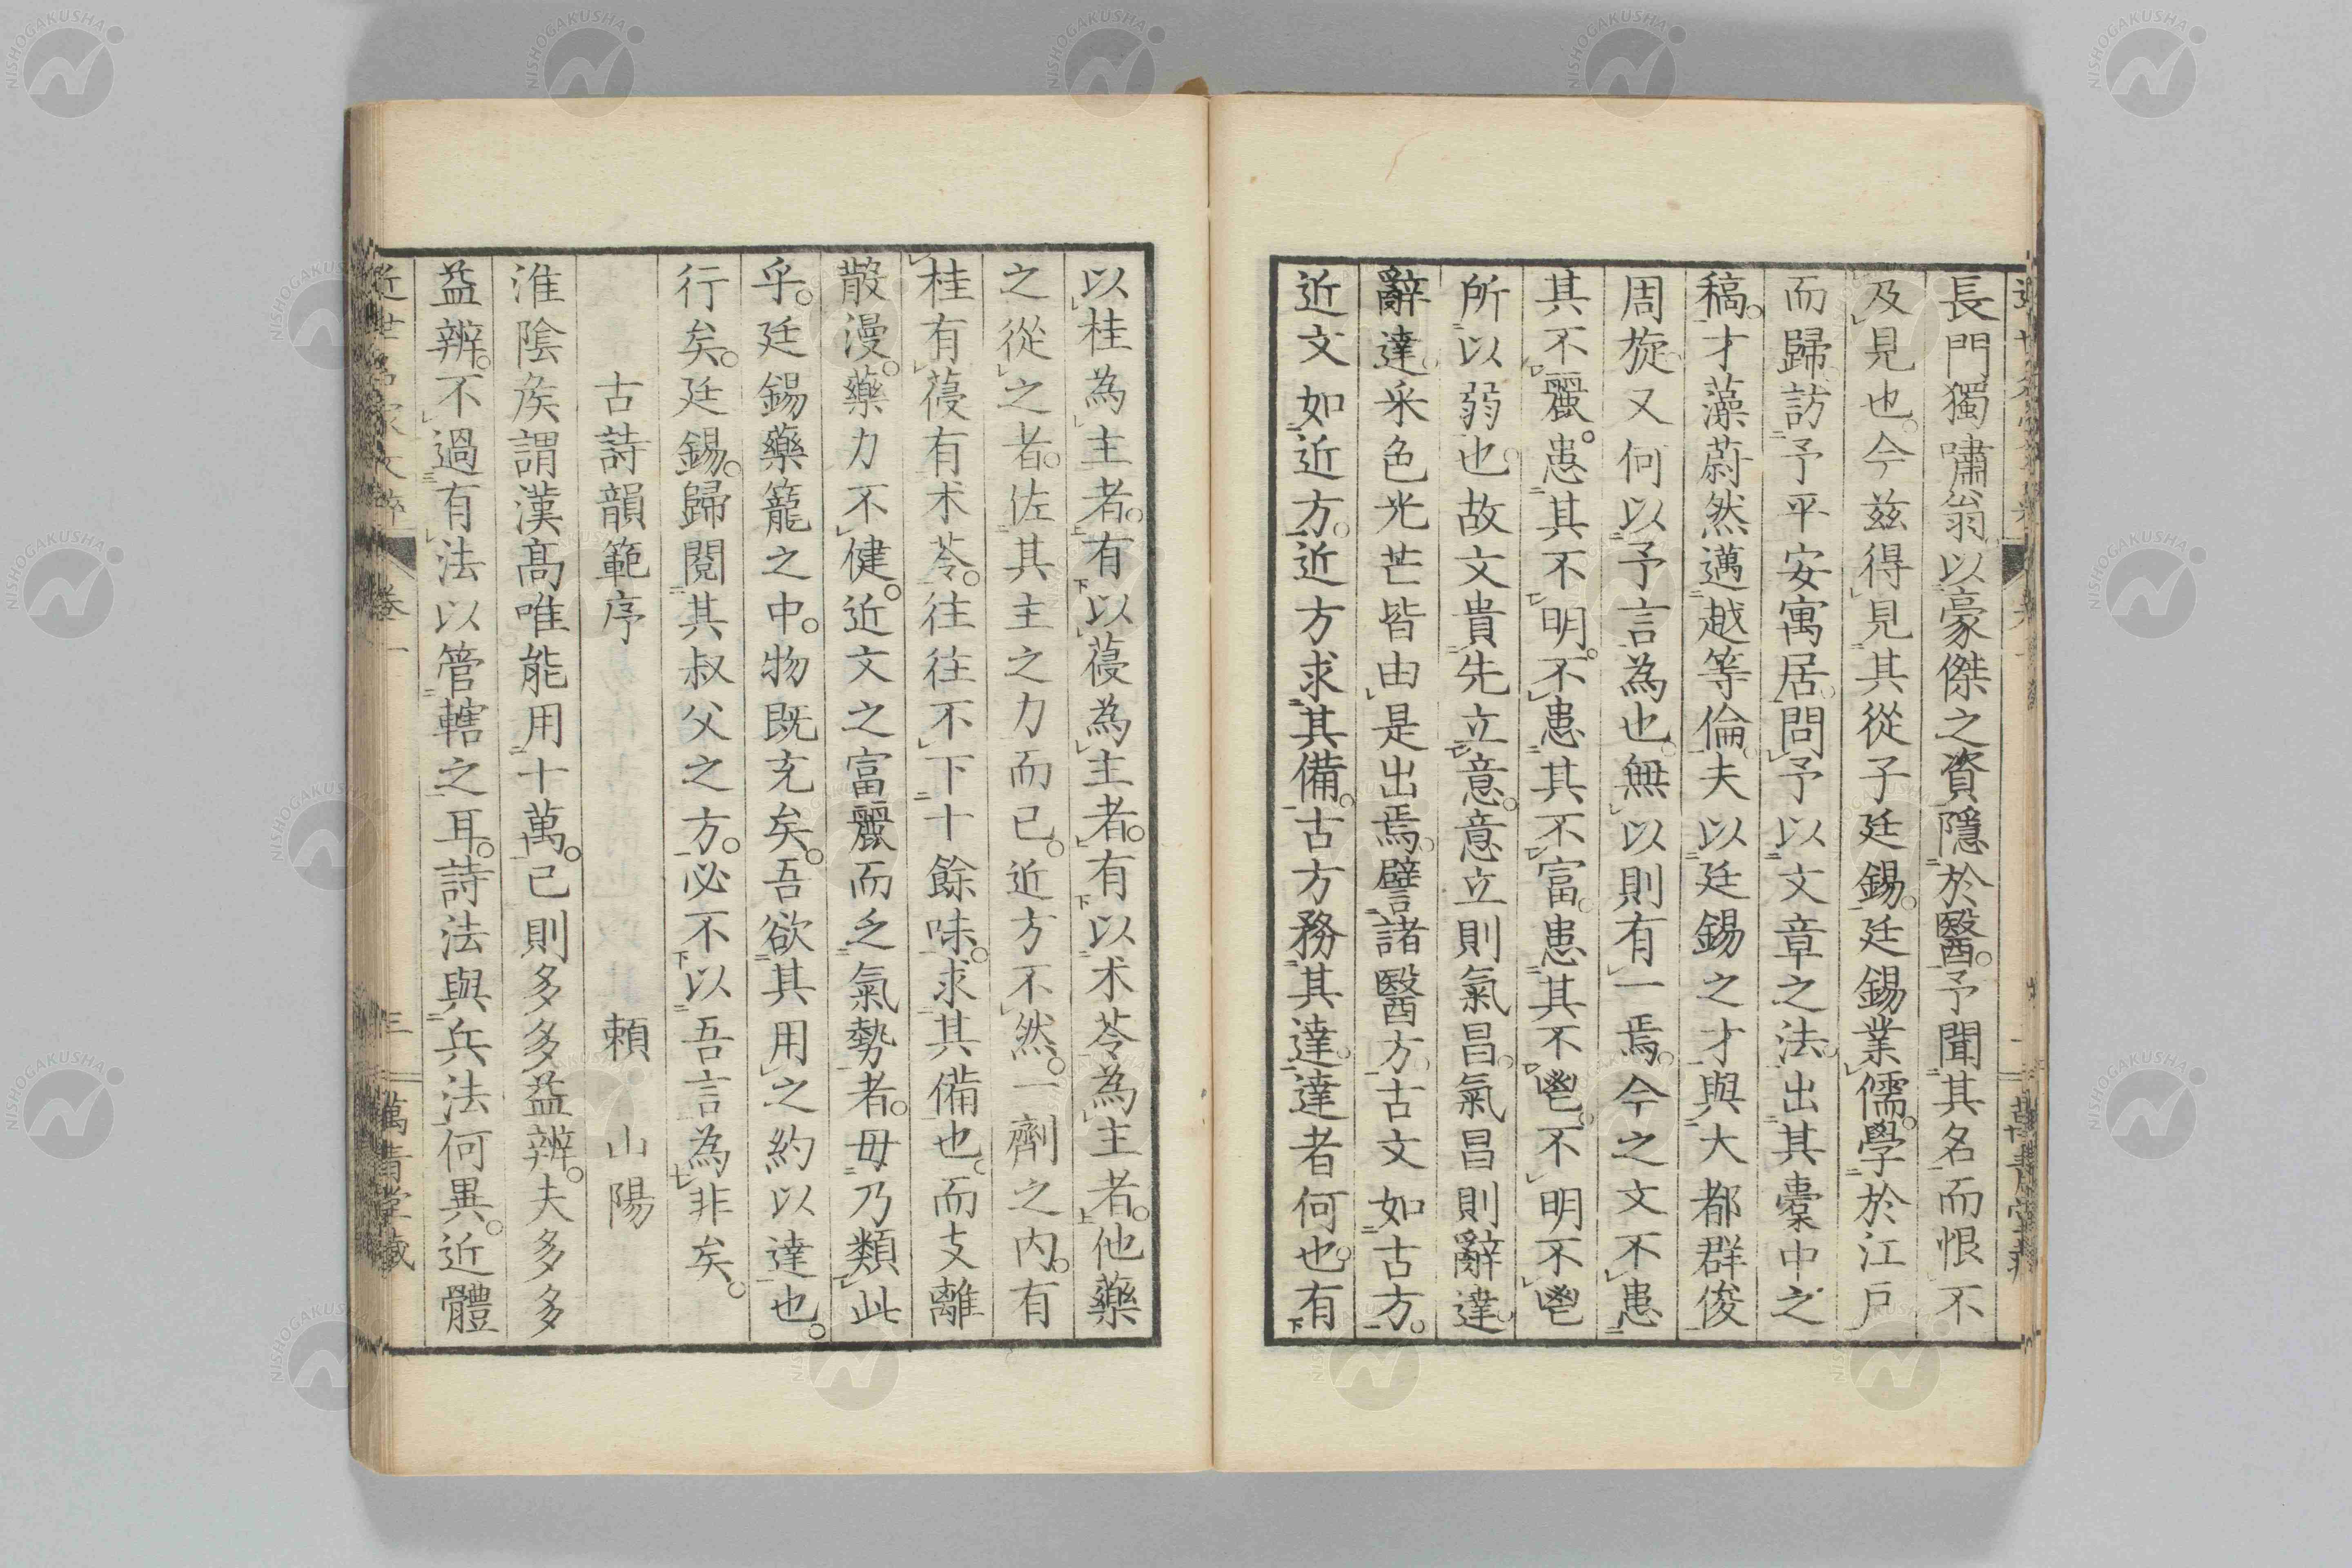 長門獨嘯翁以豪傑之資隱於醫。予聞其名而恨不
及見也。今兹得見其從子廷錫。廷錫業儒。學於江戶
而歸。訪予平安寓居。問予以文章之法。出其槖中之
稿。才藻蔚然邁越等倫。夫以廷錫之才與大都群俊
周旋。又何以予言為也。無以則有一焉。今之文不患
其不麗。患其不明。不患其不富。患其不鬯。不明不鬯
所以弱也。故文貴先立意。意立則氣昌。氣昌則辭達。
辭達。采色光芒皆由是出焉。譬諸醫方。古文如古方。
近文如近方。近方求其備。古方務其達。達者何也。有
以桂為主者。有以葠為主者。有以朮苓為主者。他藥
之從之者。佐其主之力而已。近方不然。一劑之内。有
桂有葠有朮苓。往往不下十餘味。求其備也。而支離
散漫。藥力不健。近文之富麗而乏氣勢者。毋乃類此
乎。廷錫藥籠之中。物既充矣。吾欲其用之約以達也。
行矣。廷錫。歸閲其叔父之方。必不以吾言為非矣。
古詩韻範序 賴 山陽
淮陰矦謂漢高唯能用十萬。已則多多益辨。夫多多
益辨。不過有法以管轄之耳。詩法與兵法何異。近體
近世名家文粹 卷一 三 萬青堂藏
NISHOGAKUSHA